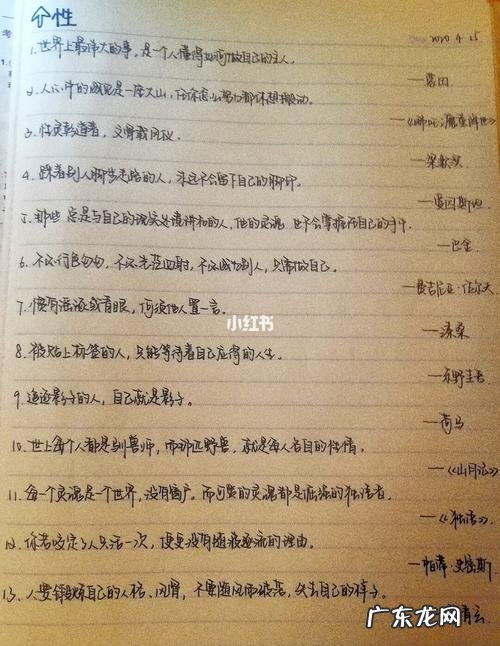 个性
2020 4. 15
1.世界上最伟大的事，是一个人懂得如何做自己的主人。
—蒙田
2.人心中的成见是一座大山，任你怎么努力都休想搬动。
—《哪吒之魔童降世》
3.性灵彰道者，文骨载风仪。
4.踩着别人脚步走路的人，永远不会留下自己的脚印。
—爱因斯坦
5.那些总是与自己的现实处境讲和的人，他的灵魂也不会掌握在自己的手中。
—巴金
6.不必行色匆匆，不必光芒四射，不必成为别人，只需做自己。
—弗吉尼亚·伍尔夫
7.
何须他人置一言。
小红书
8.被贴上标签的人，只能等待着自己应得的人生。
—东野圭吾
9.追逐影子的人，自己就是影子。
—荷马
10.世上每个人都是驯兽师，而那匹野兽，就是每人各自的性情。
—《山月记》
11.每一个灵魂是一个世界，没有窗户。而可爱的灵魂都是倔强的独语者。
—《独语》
12.你若咬定了人只活一次，便更没有随波逐流的理由。
13.人要锻炼自己的人格、风骨，不要随风而披靡，失去自己的样子。
广东龙网